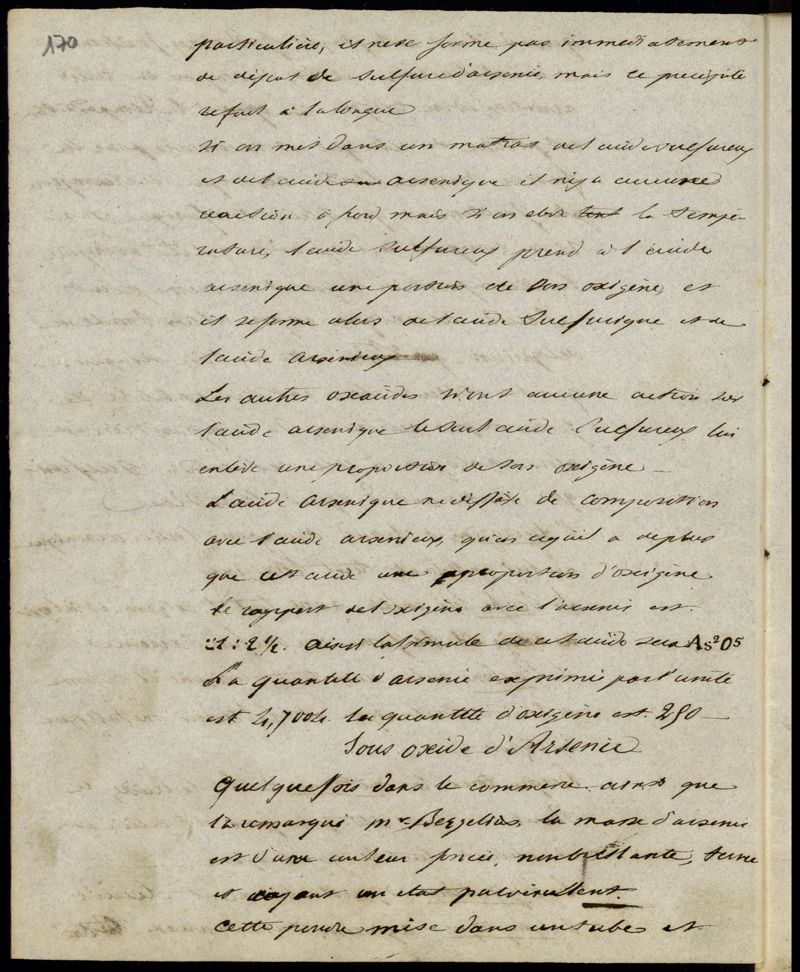 170
particulière, il ne se forme pas immediatement
de dépot de sulfure d'arsenic, mais ce précipité
se fait à la longue
Si on met dans un matras de l'acide sulfureux
et de l'acide arsenique il n'y a aucune
reaction à froid mais si on eleve la tempé-
rature, l'acide sulfureux prend à l'acide
arsenique une portion de son oxigène et
il se forme alors de l'acide sulfurique et de
l'acide arsénieux
Les autres oxacides n'ont aucune action sur
l'acide arsenique le seul acide sulfureux lui
enlève une proportion de son oxigène —
L'acide arsenique ne diffère de composition
avec l'acide arsenieux, qu'en ce qu'il a de plus
que cet acide une proportion d'oxigène
le rapport de l'oxigène avec l'arsenic est
::1:2½. ainsi la formule de cet acide sera As²O⁵
La quantité d'arsenic exprimée par l'unité
est 4,7004. la quantité d'oxigène est 250 —
Sous oxide d'Arsenic
Quelque fois dans le commerce ainsi que
l'a remarqué Mr Berzelius, la masse d'arsenic
est d'une couleur foncée, non brillante, terne
et ayant un état pulvérulent.
cette poudre mise dans un tube et